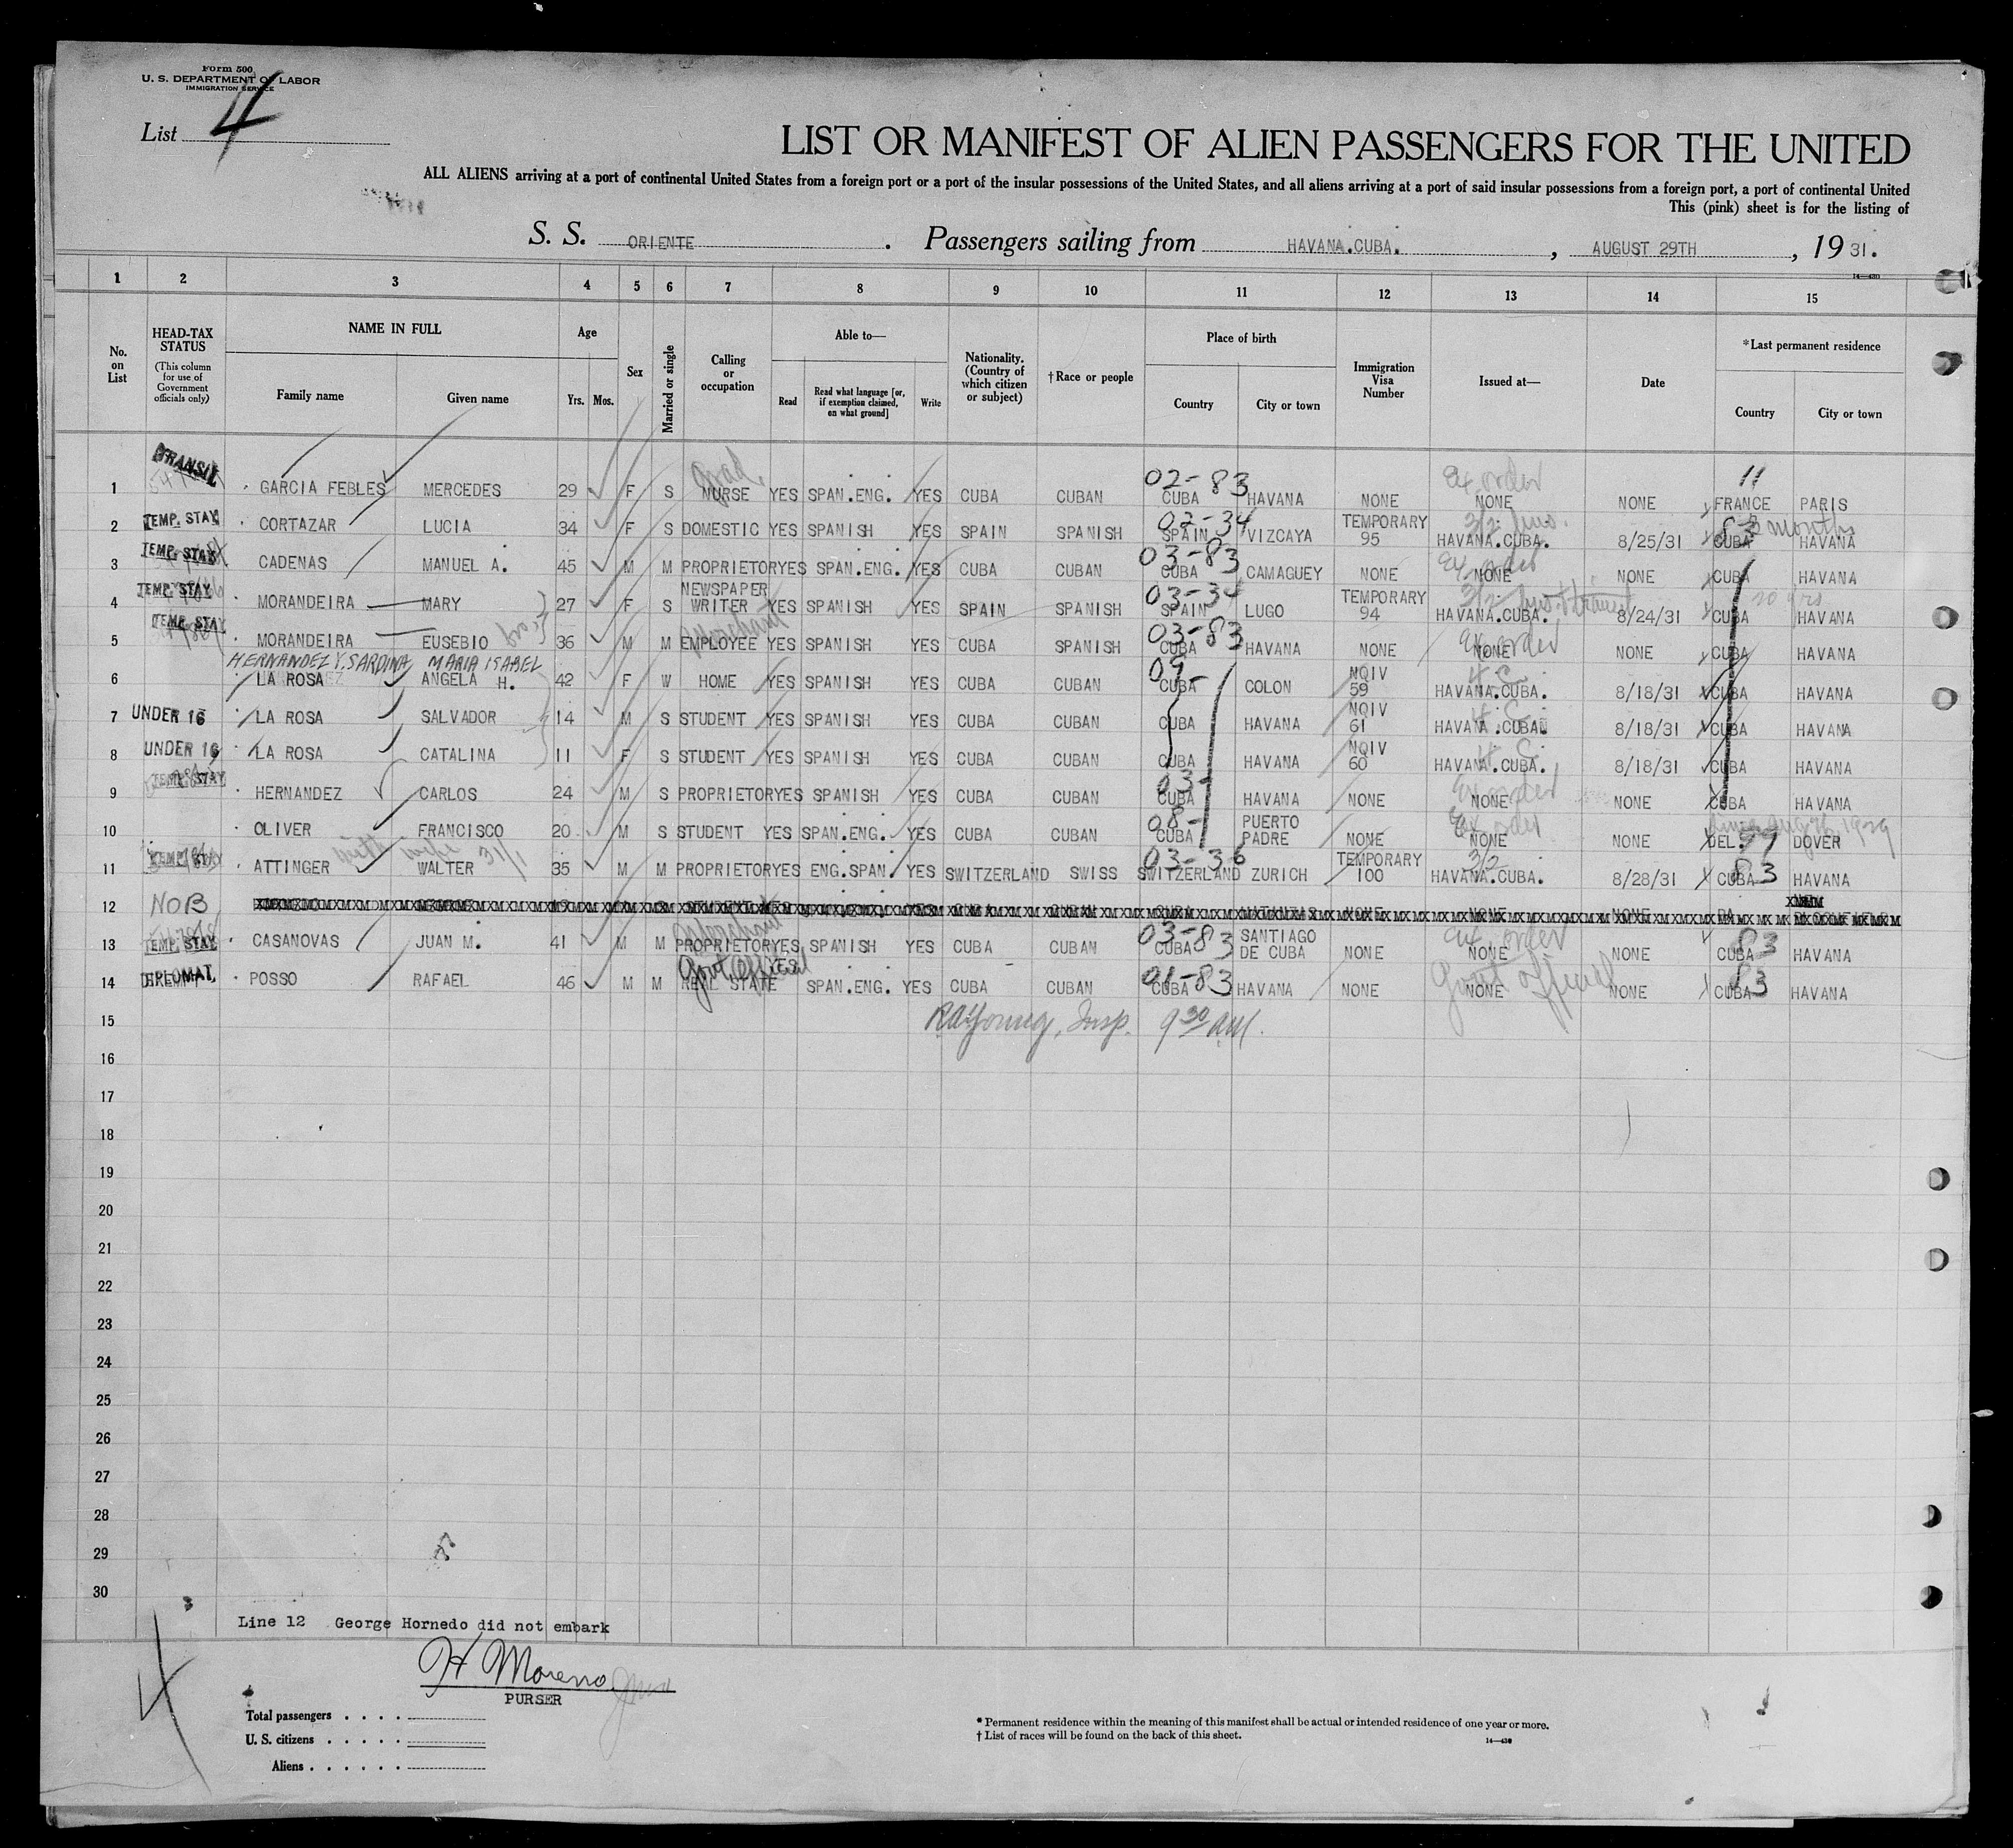 Form 500
U. S. DEPARTMENT OF LABOR
IMMIGRATION SERVICE
List 4
LIST OR MANIFEST OF ALIEN PASSENGERS FOR THE UNITED
ALL ALIENS arriving at a port of continental United States from a foreign port or a port of the insular possessions of the United States, and all aliens arriving at a port of said insular possessions from a foreign port, a port of continental United
This (pink) sheet is for the listing of
S. S. ORIENTE. Passengers sailing from HAVANA.CUBA., AUGUST 29TH, 1931.
14—430
1 2 3 4 5 6 7 8 9 10 11 12 13 14 15
No. on List
HEAD-TAX STATUS (This column for use of Government officials only)
NAME IN FULL Family name Given name
Age Yrs. Mos.
Sex
Married or single
Calling or occupation
Able to— Read Read what language [or, if exemption claimed, on what ground] Write
Nationality. (Country of which citizen or subject)
†Race or people
Place of birth Country City or town
Immigration Visa Number
Issued at—
Date
*Last permanent residence Country City or town
Grad. 02-83 Ex order 11
1 TRANSIT GARCIA FEBLES MERCEDES 29 F S NURSE YES SPAN.ENG. YES CUBA CUBAN CUBA HAVANA NONE NONE NONE FRANCE PARIS
02-34 3/2 83 months
2 TEMP. STAY CORTAZAR LUCIA 34 F S DOMESTIC YES SPANISH YES SPAIN SPANISH SPAIN VIZCAYA TEMPORARY 95 HAVANA.CUBA. 8/25/31 CUBA HAVANA
03-83 Ex order
3 TEMP. STAY CADENAS MANUEL A. 45 M M PROPRIETOR YES SPAN.ENG. YES CUBA CUBAN CUBA CAMAGUEY NONE NONE NONE CUBA HAVANA
03-34 3/2 20 yrs
4 TEMP. STAY MORANDEIRA MARY 27 F S NEWSPAPER WRITER YES SPANISH YES SPAIN SPANISH SPAIN LUGO TEMPORARY 94 HAVANA.CUBA. 8/24/31 CUBA HAVANA
Merchant 03-83 Ex order
5 TEMP. STAY MORANDEIRA EUSEBIO bro. 36 M M EMPLOYEE YES SPANISH YES CUBA SPANISH CUBA HAVANA NONE NONE NONE CUBA HAVANA
HERNANDEZ Y. SARDINA, MARIA ISABEL
6 LA ROSA ANGELA H. 42 F W HOME YES SPANISH YES CUBA CUBAN 09- CUBA COLON NQIV 59 HAVANA.CUBA. 8/18/31 CUBA HAVANA
7 UNDER 16 LA ROSA SALVADOR 14 M S STUDENT YES SPANISH YES CUBA CUBAN CUBA HAVANA NQIV 61 HAVANA.CUBA. 8/18/31 CUBA HAVANA
8 UNDER 16 LA ROSA CATALINA 11 F S STUDENT YES SPANISH YES CUBA CUBAN CUBA HAVANA NQIV 60 HAVANA.CUBA. 8/18/31 CUBA HAVANA
03- Ex order
9 TEMP. STAY HERNANDEZ CARLOS 24 M S PROPRIETOR YES SPANISH YES CUBA CUBAN CUBA HAVANA NONE NONE NONE CUBA HAVANA
08- Ex order
10 OLIVER FRANCISCO 20 M S STUDENT YES SPAN.ENG. YES CUBA CUBAN CUBA PUERTO PADRE NONE NONE NONE DEL. DOVER
with wife 31/1 03-36 3/2 83
11 TEMP. STAY ATTINGER WALTER 35 M M PROPRIETOR YES ENG.SPAN. YES SWITZERLAND SWISS SWITZERLAND ZURICH TEMPORARY 100 HAVANA.CUBA. 8/28/31 CUBA HAVANA
12 NOB
Merchant 03-83 Ex order 83
13 TEMP. STAY CASANOVAS JUAN M. 41 M M PROPRIETOR YES SPANISH YES CUBA CUBAN CUBA SANTIAGO DE CUBA NONE NONE NONE CUBA HAVANA
Govt. Official 01-83 Govt official 83
14 DIPLOMAT, POSSO RAFAEL 46 M M REAL STATE YES SPAN.ENG. YES CUBA CUBAN CUBA HAVANA NONE NONE NONE CUBA HAVANA
15 RAYoung, Insp. 9 30 AM.
16
17
18
19
20
21
22
23
24
25
26
27
28
29
30
Line 12 George Hornedo did not embark
H Moreno
PURSER
4
Total passengers . . . .
U. S. citizens . . . . .
Aliens . . . . . .
* Permanent residence within the meaning of this manifest shall be actual or intended residence of one year or more.
† List of races will be found on the back of this sheet.
14—430